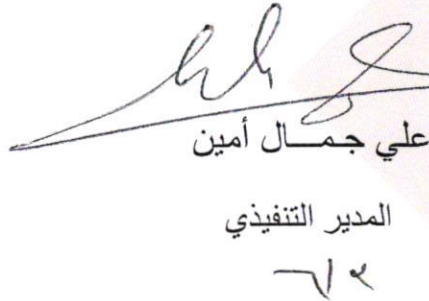 علي جمــال أمين
المدير التنفيذي